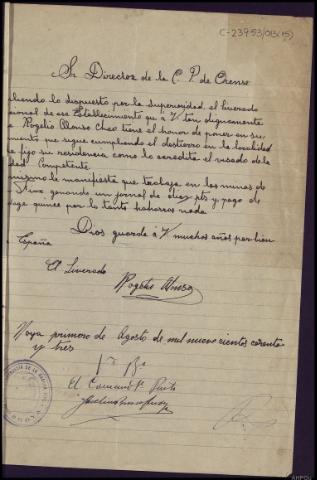 C-23953/013(15)
Sr Director de la C. P. de Orense
pliendo lo dispuesto por la Superioridad, el liverado
cional de ese Establecimiento que a V tan dignamente
Rogelio Alonso Chao tiene el honor de poner en su
miento que sigue cumpliendo el destierro en la localidad
fijo su residencia como lo acredita el visado de la
dad Competente.
mismo le manifiesta que trabaja en las minas de
Silva, ganando un jornal de diez pts y pago de
daje quince por lo tanto haorros nada
Dios guarde á V muchos años por bien
España
El Liverado
Rogelio Alonso
Noya primero de Agosto de mil nueve cientos cuarenta
y tres
Vº Bº
El Comand. Pto
AHPOU